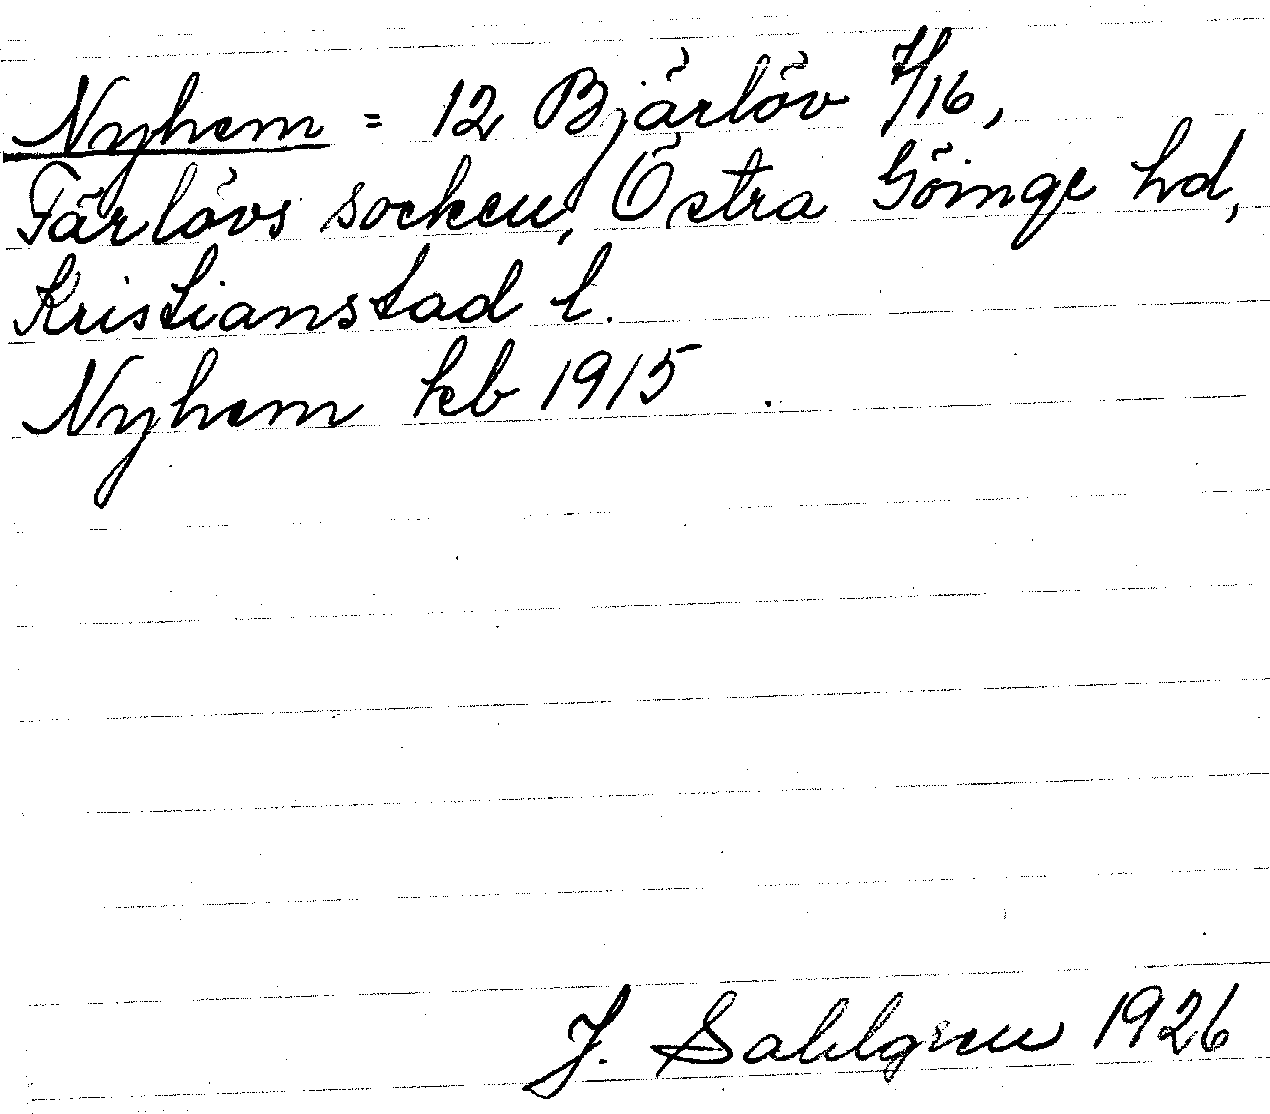 Nyhem = 12 Bjärlöv 7/16,
Färlövs socken, Östra Göinge hd,
Kristianstad l.
Nyhem kb 1915
J. Sahlgren 1926